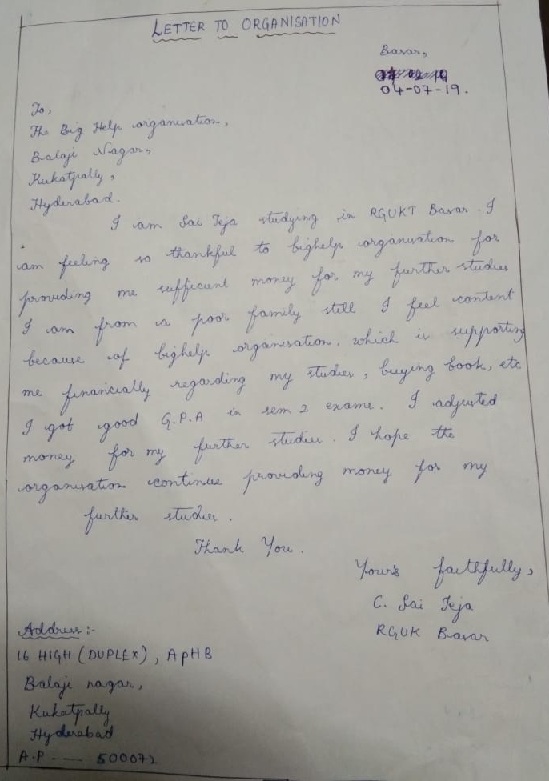 LETTER TO ORGANISATION
Basar,
04-07-19.
To,
The Big Help organisation,
Balaji Nagar,
Kukatpally,
Hyderabad.
I am Sai Teja studying in RGUKT Basar. I
am feeling so thankful to bighelp organisation for
providing me sufficient money for my further studies
I am from a poor family still I feel content
because of bighelp organisation, which is supporting
me financially regarding my studies, buying book, etc
I got good G.P.A in sem 2 exams. I adjusted
money for my further studies. I hope the
organisation continues providing money for my
further studies.
Thank You.
Yours faithfully,
C. Sai Teja
RGUK Basar
Address:-
16 HIGH (DUPLEX), APHB
Balaji nagar,
Kukatpally
Hyderabad
A.P ---- 500072